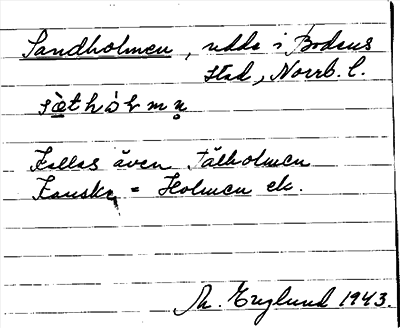 Sandholmen, udde i Bodens
stad, Norrb. l.
Kallas även Tälholmen
Kanske = Holmen ek.
Englund 1943.